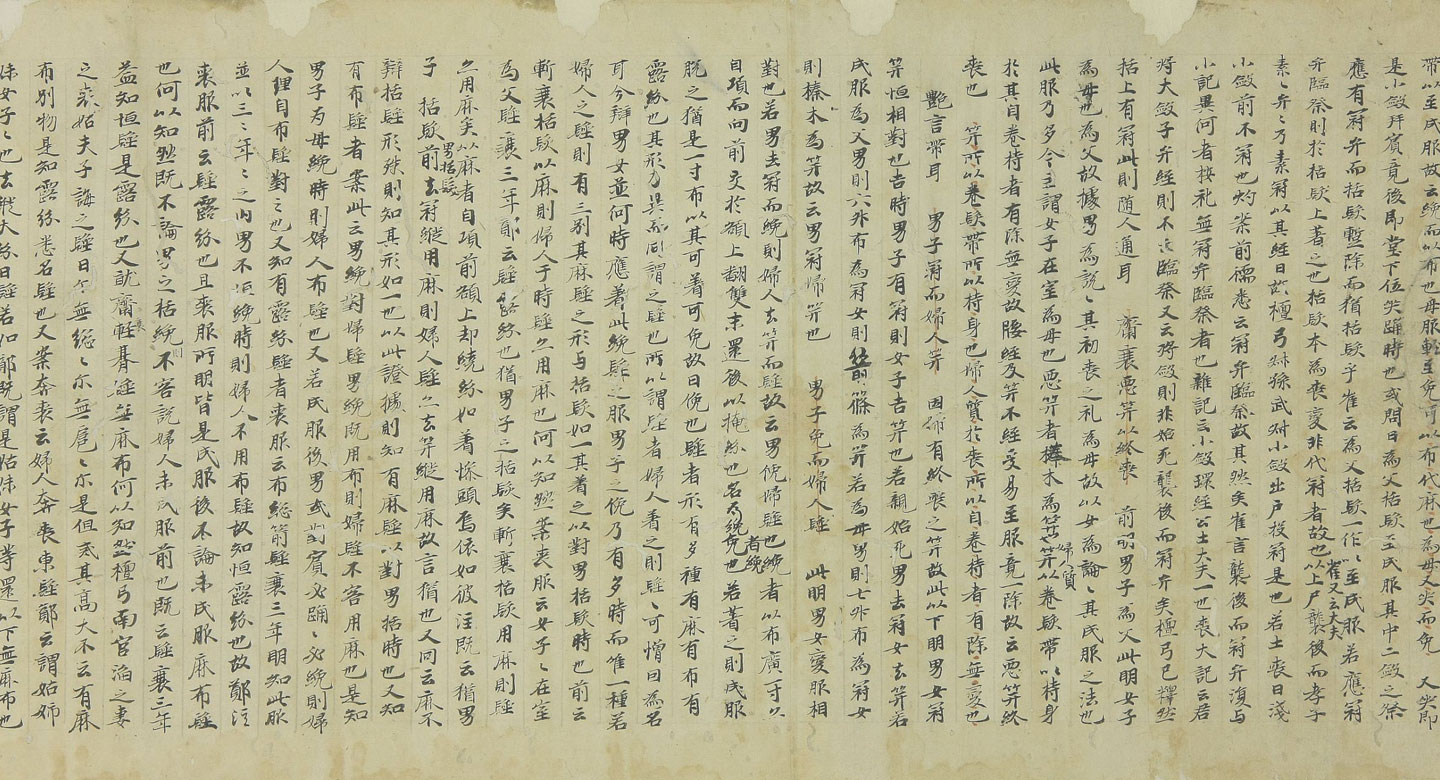 帶以至成服故去絻而以布也母服輕至免可以布代麻也為母又哭而免　又哭即
是小斂拜賓竟後即堂下位哭踊時也或問曰為父括髮至成服其中二斂之祭
應有冠弁而括髮暫除而猶括髮乎崔云為父括髮一作以至成服若應冠
弁臨祭則於括髮上著之也括髮本為喪變非代冠者故也崔又云大夫以上尸襲後而孝子
素弁〻乃素冠以其絰日故檀弓叔孫武叔小斂出戶投冠是也若士喪日淺
小斂前不冠也灼案前儒悉云冠弁臨祭故其然矣崔言襲後而冠弁復與
小記異何者按礼無冠弁臨祭者也雜記云小斂環絰公士大夫一也喪大記云君
將大斂子弁絰則不云臨祭又云將斂則非始死襲後而冠弁矣檀弓已釋然
括上有冠此則隨人通耳　齊衰惡笄以終喪　前明男子為父此明女子
為母也為父故據男為說〻其初喪之礼為母故以女為論〻其成服之法也
此服乃多今主謂女子在室為母也惡笄者榛木為笄也婦人質笄以卷髮帶以持身
於其自卷持者有除無變故腰絰及笄不經受易至服竟除故云惡笄終
喪也　笄所以卷髮帶所以持身也婦人質於喪所以自卷持者有除無變也
艷言帶耳　男子冠而婦人笄　因鄭有終喪之笄故此以下明男女冠
笄恒相對也吉時男子有冠則女子吉笄也若親始死男去冠女去笄若
成服為父男則六升布為冠女則箭篠為笄若為母男則七升布為冠女
則榛木為笄故云男冠婦笄也　男子免而婦人髽　此明男女變服相
對也若男去冠而絻則婦人去笄而髽故云男俛婦髽也絻者以布廣一寸以
自項而向前交於額上翻雙末還後以掩紒也名為絻者絻免也若著之則成服
脫之猶是一寸布以其可著可免故曰俛也髽者形有多種有麻有布有
露紒也其形乃異而同謂之髽也所以謂髽者婦人著之則髽〻可憎因為名
耳今辯男女並何時應著此絻髽之服男子之俛乃有多時而唯一種若
婦人之髽則有三別其麻髽之形与括髮如一其著之以對男括髮時也前云
斬衰括髮以麻則婦人于時髽亦用麻也何以知然案喪服云女子〻在室
為父髽衰三年鄭云髽露紒也猶男子之括髮矣斬衰括髮用麻則髽
亦用麻矣以麻者自項前額上却繞紒如著幓頭焉依如彼注既云猶男
子　括髮男括髮前去冠縰用麻則婦人髽亦去笄縰用麻故言猶也又同云麻不
辯括髽形殊則知其形如一也以此證據則知有麻髽以對男括時也又知
有布髽者案此云男絻對婦髽男絻既用布則婦髽不容用麻也是知
男子為母絻時則婦人布髽也又若成服後男或對賓必踊〻必絻則婦
人理自布髽對之也又知有露紒髽者喪服云布総箭髽衰三年明知此服
並以三〻年〻之內男不恒絻時則婦人不用布髽故知恒露紒也故鄭注
喪服前云髽露紒也且喪服所明皆是成服後不論未成服麻布髽
也何以知然既不論男之括絻則不容說婦人未成服前也既云髽衰三年
益知恒髽是露紒也又就齊衰輕朞髽無麻布何以知然檀弓南宮縚之妻
之喪姑夫子誨之髽曰尒無総〻尒無扈〻尒是但戒其高大不云有麻
布別物是知露紒悉名髽也又案奔喪云婦人奔喪東髽鄭云謂姑姉
妹女子〻也去纚大紒曰髽若如鄭既謂是姑姉妹女子等還以下無麻布也